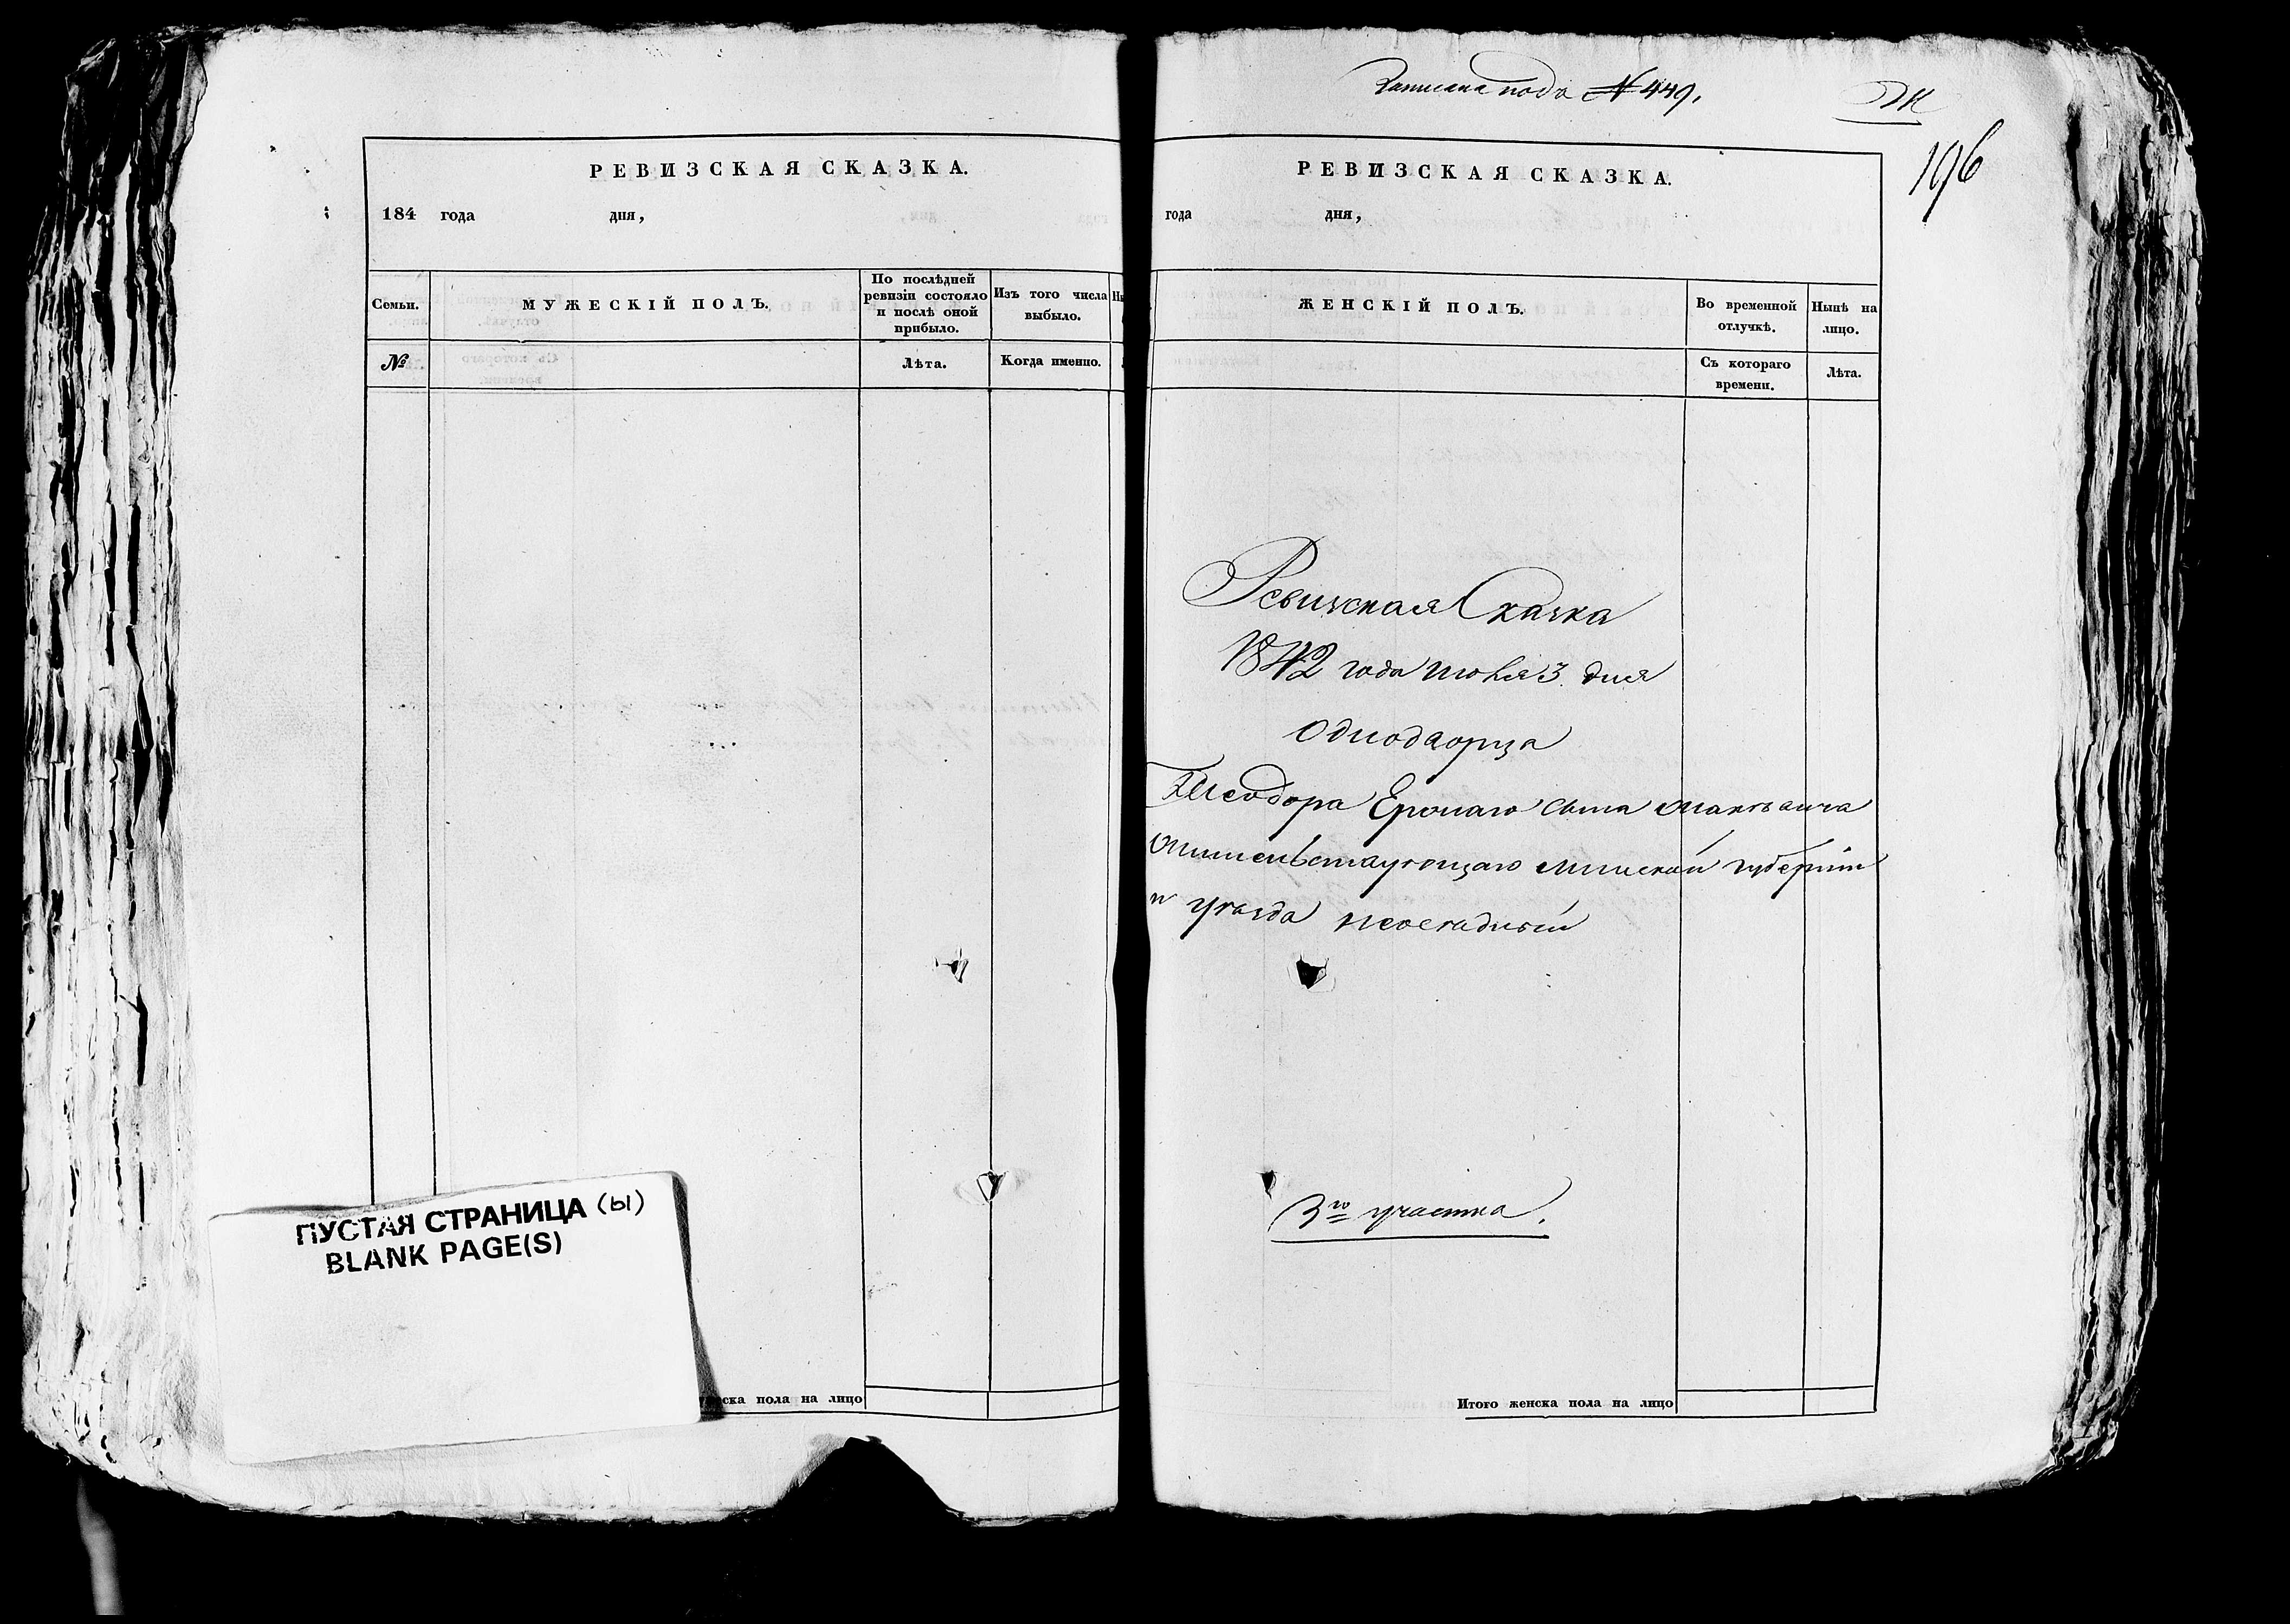 РЕВИЗСКАЯ СКАЗКА.
184 года дня,
Семьи.
МУЖЕСКІЙ ПОЛЪ.
По послѣдней
ревизіи состояло
и послѣ оной
прибыло.
Изъ того числа
выбыло.
№
Лѣта.
Когда именно.
ПУСТАЯ СТРАНИЦА (Ы)
BLANK PAGE(S)
пола на лицо
Записана подъ № 449.
196
РЕВИЗСКАЯ СКАЗКА.
года дня,
ЖЕНСКІЙ ПОЛЪ.
Во временной
отлучкѣ.
Нынѣ на
лицо.
Съ котораго
времени.
Лѣта.
Ревизская Сказка
1842 года июня 3 дня
Однодворца
Теодора сына
жительствующаго Минской губерніи
и уѣзда неосѣдлый
3го участка.
Итого женска пола на лицо